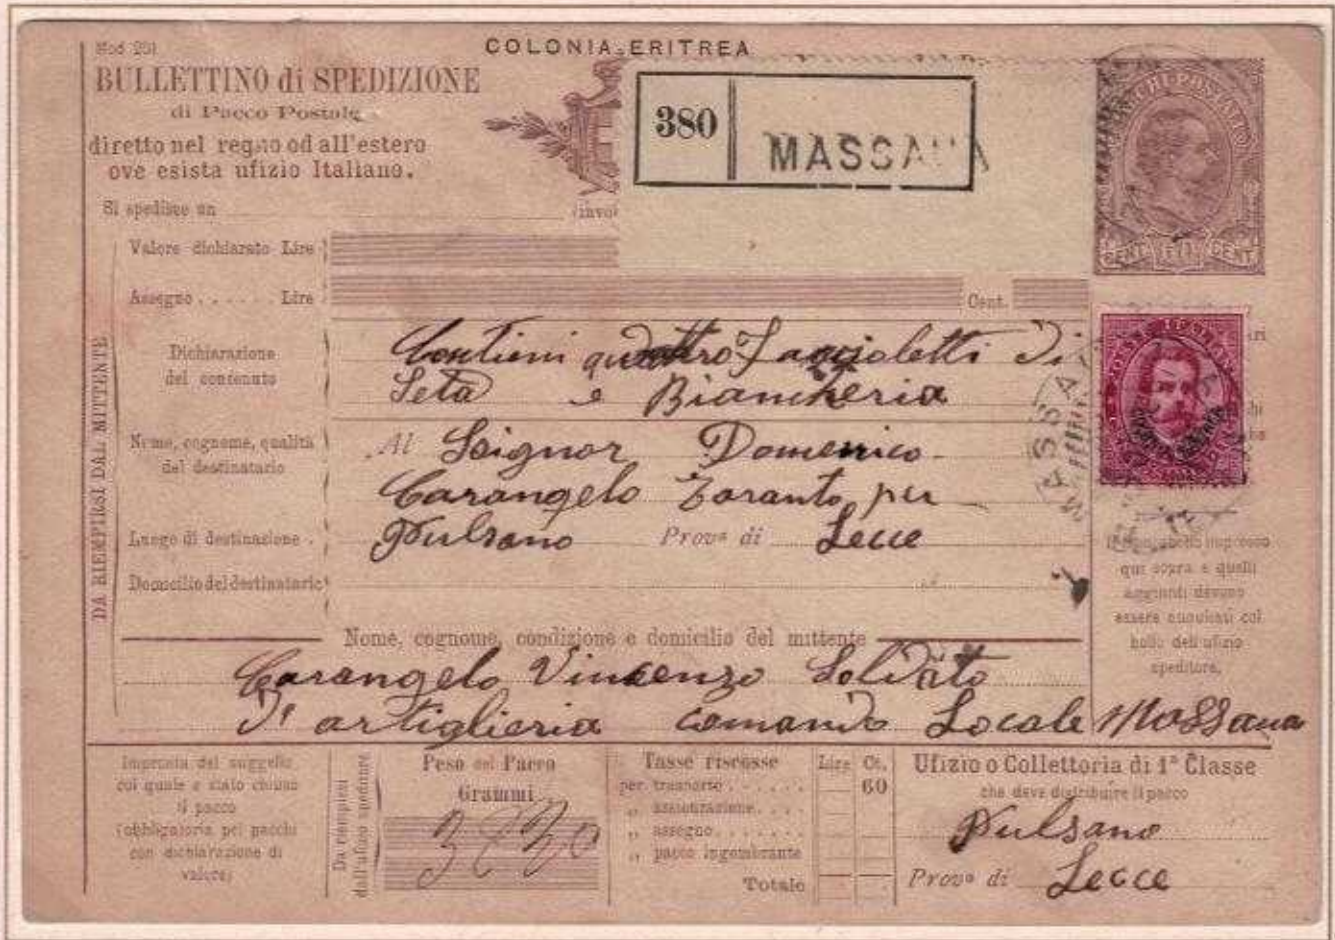 Mod 251
COLONIA ERITREA
BULLETTINO di SPEDIZIONE
di Pacco Postale
diretto nel regno od all'estero
ove esista ufizio Italiano.
380
MASSAUA
PACCHI POSTALI
CENT CENT
Si spedisce un
Valore dichiarato Lire
Assegno . . . . . . Lire
Cent.
DA RIEMPIRSI DAL MITTENTE
Dichiarazione
del contenuto
Contieni quattro Faccioletti di
Seta e Biancheria
Nome, cognome, qualità
del destinatario
Al Seignor Domenico
Carangelo Taranto per
Luogo di destinazione .
Pulsano Prov.ª di Lecce
Domicilio del destinatario
MASSAUA
qui sopra e quelli
aggiunti devono
essere annullati col
bollo dell'ufizio
speditore.
Nome, cognome, condizione e domicilio del mittente
Carangelo Vincenzo Soldato
d' artiglieria comando Locale Massaua
Impronta del suggello
col quale è stato chiuso
il pacco
(obbligatoria pei pacchi
con dichiarazione di
valore)
Da riempirsi
dall'ufizio speditore
Peso del Pacco
Grammi
Tasse riscosse
Lire Ct.
per trasporto . . . . . . 60
„ assicurazione . . . .
„ assegno . . . . . . .
„ pacco ingombrante
Totale
Ufizio o Collettoria di 1ª Classe
che deve distribuire il pacco
Pulsano
Prov.ª di Lecce